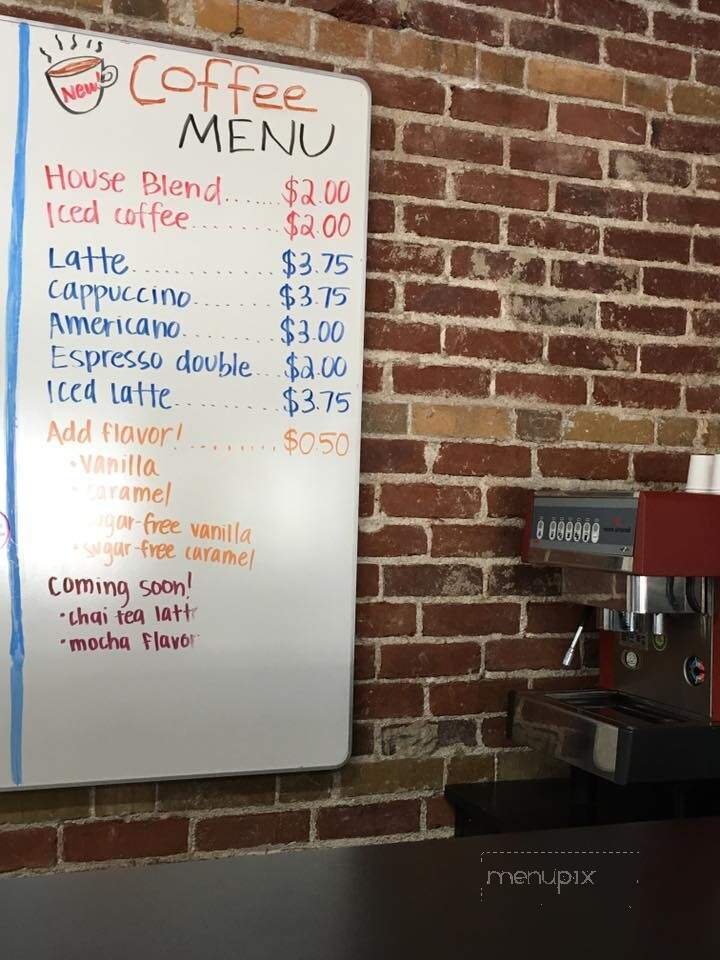 New!
Coffee
MENU
House Blend....... $2.00
Iced coffee............ $2.00
Latte.................. $3.75
Cappuccino......... $3.75
Americano........... $3.00
Espresso double... $2.00
Iced latte............. $3.75
Add flavor! ......... $0.50
• vanilla
• caramel
• sugar-free vanilla
• sugar-free caramel
Coming soon!
• chai tea latte
• mocha flavor
menupix